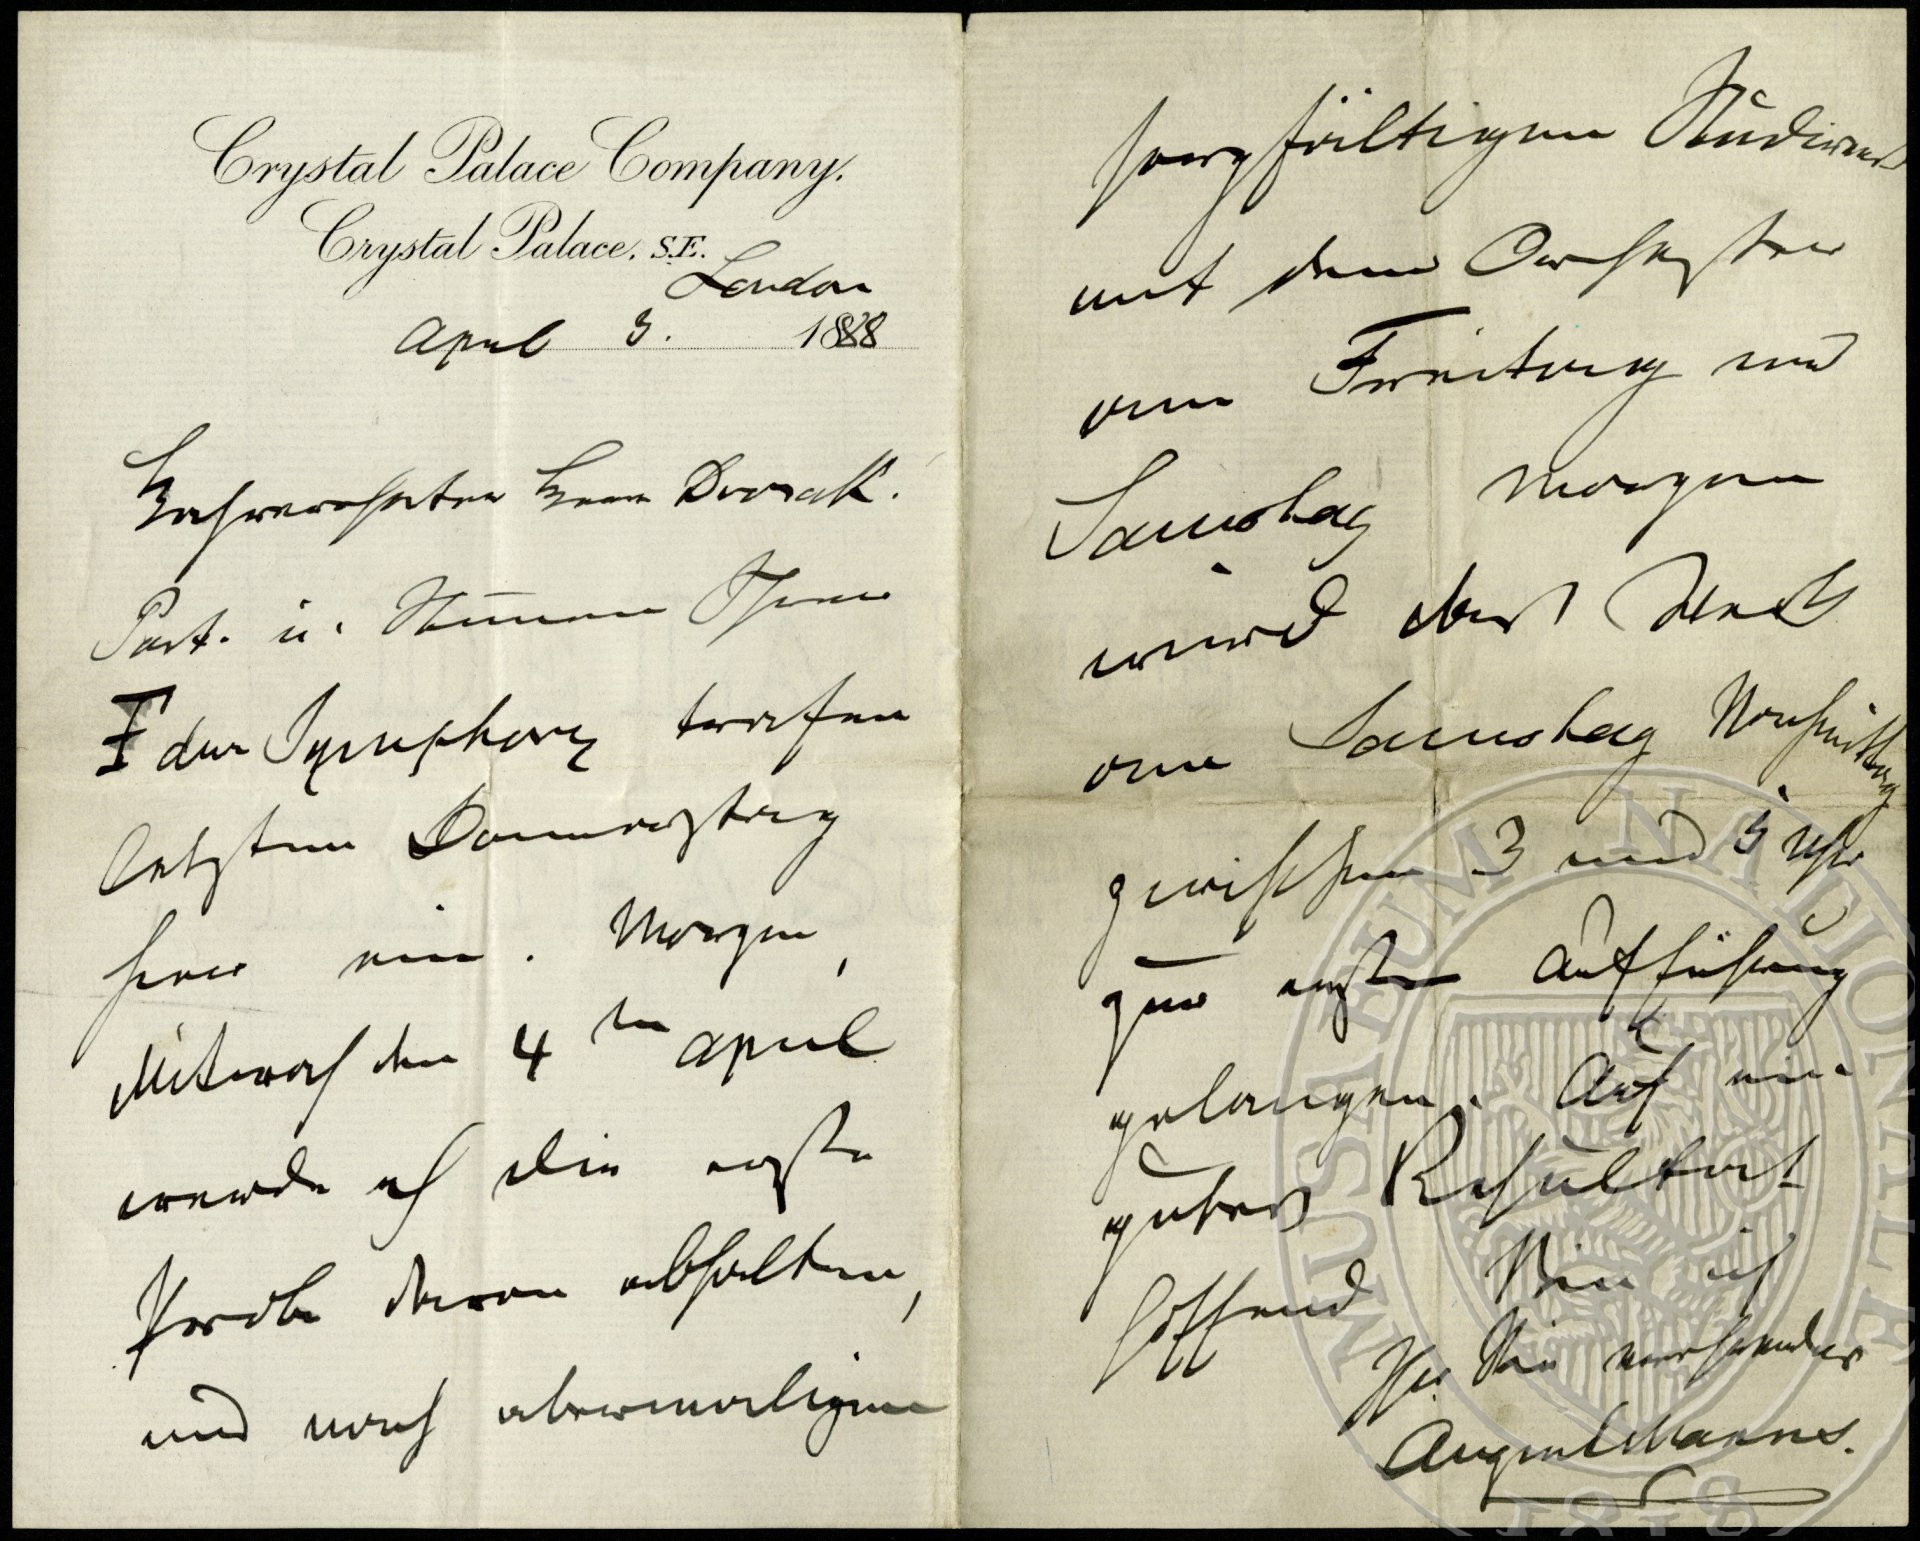 Crystal Palace Company.
Crystal Palace. S.E.
London
April 3. 1888
Hochverehrter Herr Dvorak!
Part. u. Stimmen Ihrer
F dur Symphony trafen
letzten Donnerstag
hier ein. Morgen,
Mitwoch den 4ten April
werde ich die erste
Probe davon abhalten,
und nach abermaligem
sorgfältigem Studieren
mit dem Orchester
am Freitag und
Samstag Morgen
wird das Werk
am Samstag Nachmittag
zwischen 3 und 5 Uhr
zur ersten Aufführung
gelangen. Auf ein
gutes Resultat
hoffend bin ich
Ihr Sie verehrender
August Manns.
MUSAEUM NATIONALE
1818